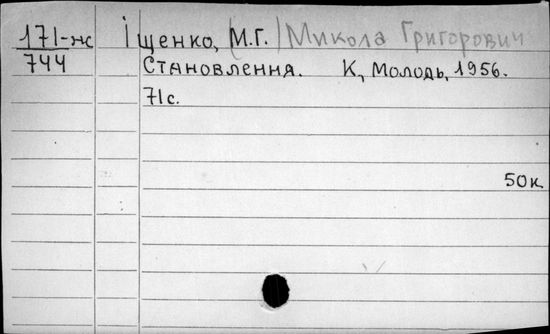 171-ж Іщенко, (М.Г.) Микола Григорович
744 Становлення. К, Молодь, 1956.
71с.
50к